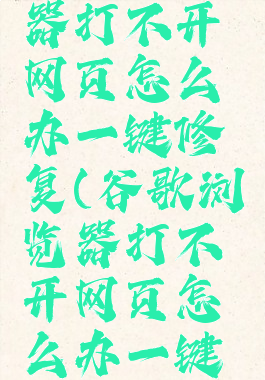 器打不开
网页怎么
办一键修
复(谷歌浏
览器打不
开网页怎
么办一键